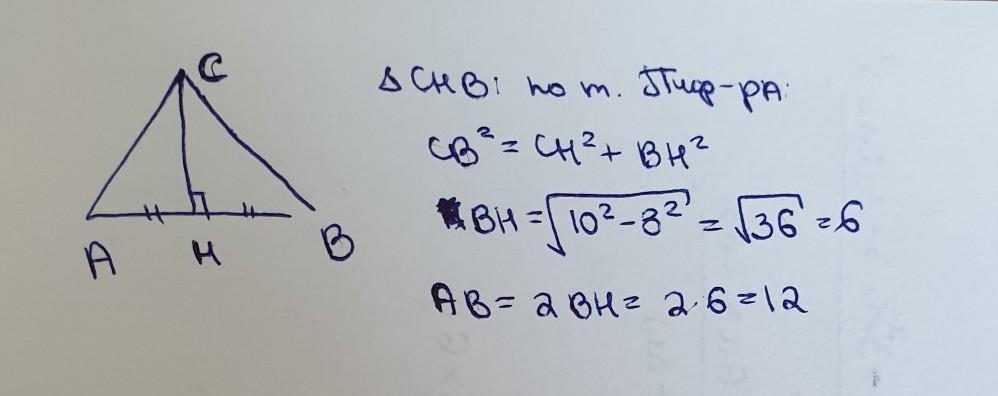 C
A H B
Δ CHB: по т. Пиф-рА:
CB² = CH² + BH²
BH = √10² - 8² = √36 = 6
AB = 2 BH = 2·6 = 12